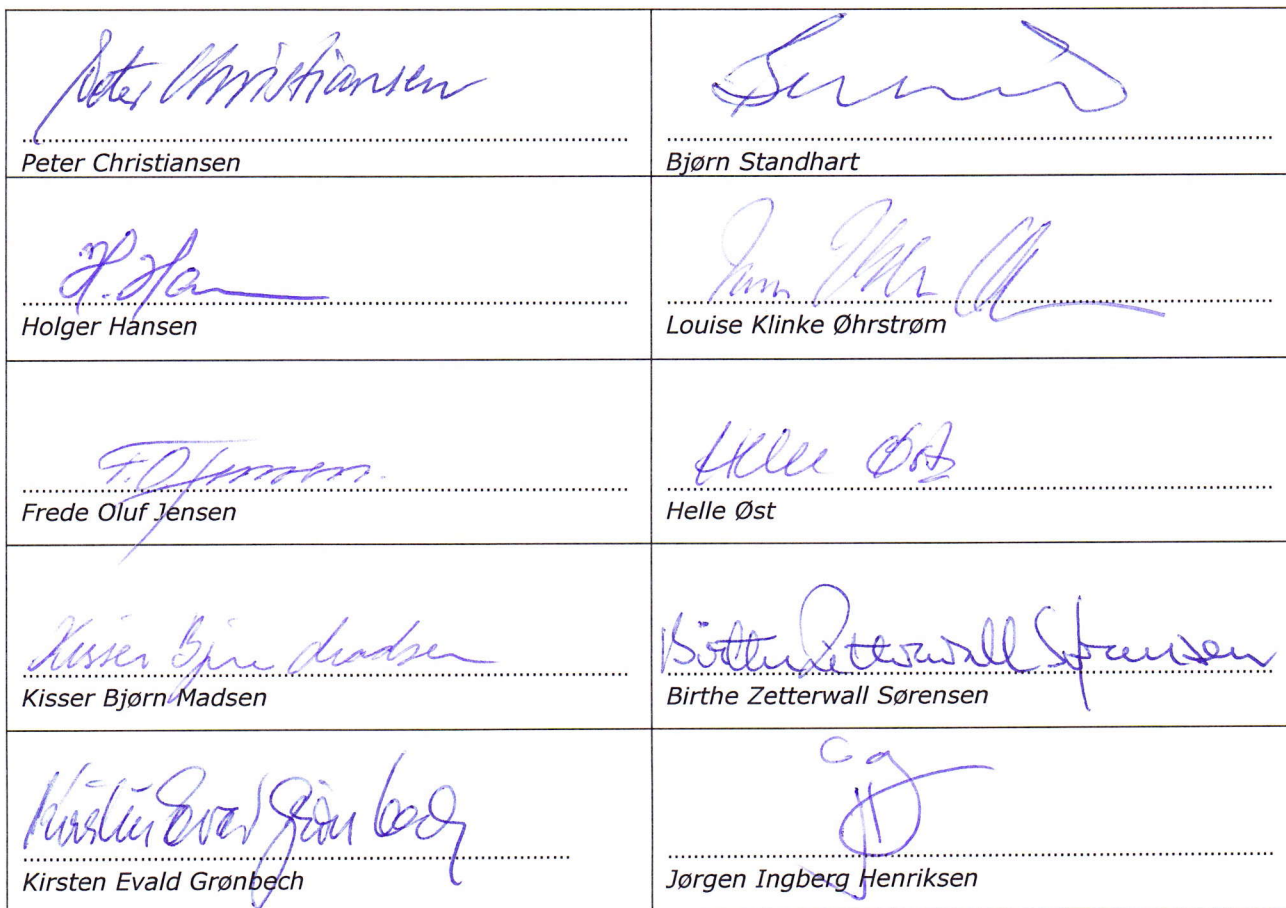 Peter Christiansen
Peter Christiansen
Bjørn Standhart
H. Han
Holger Hansen
Louise Klinke Øhrstrøm
F.O Jensen.
Frede Oluf Jensen
Helle Øst
Helle Øst
Kisser Bjørn Madsen
Kisser Bjørn Madsen
Birthe Zetterwall Sørensen
Birthe Zetterwall Sørensen
Kirsten Evald Grønbech
Kirsten Evald Grønbech
Jørgen Ingberg Henriksen